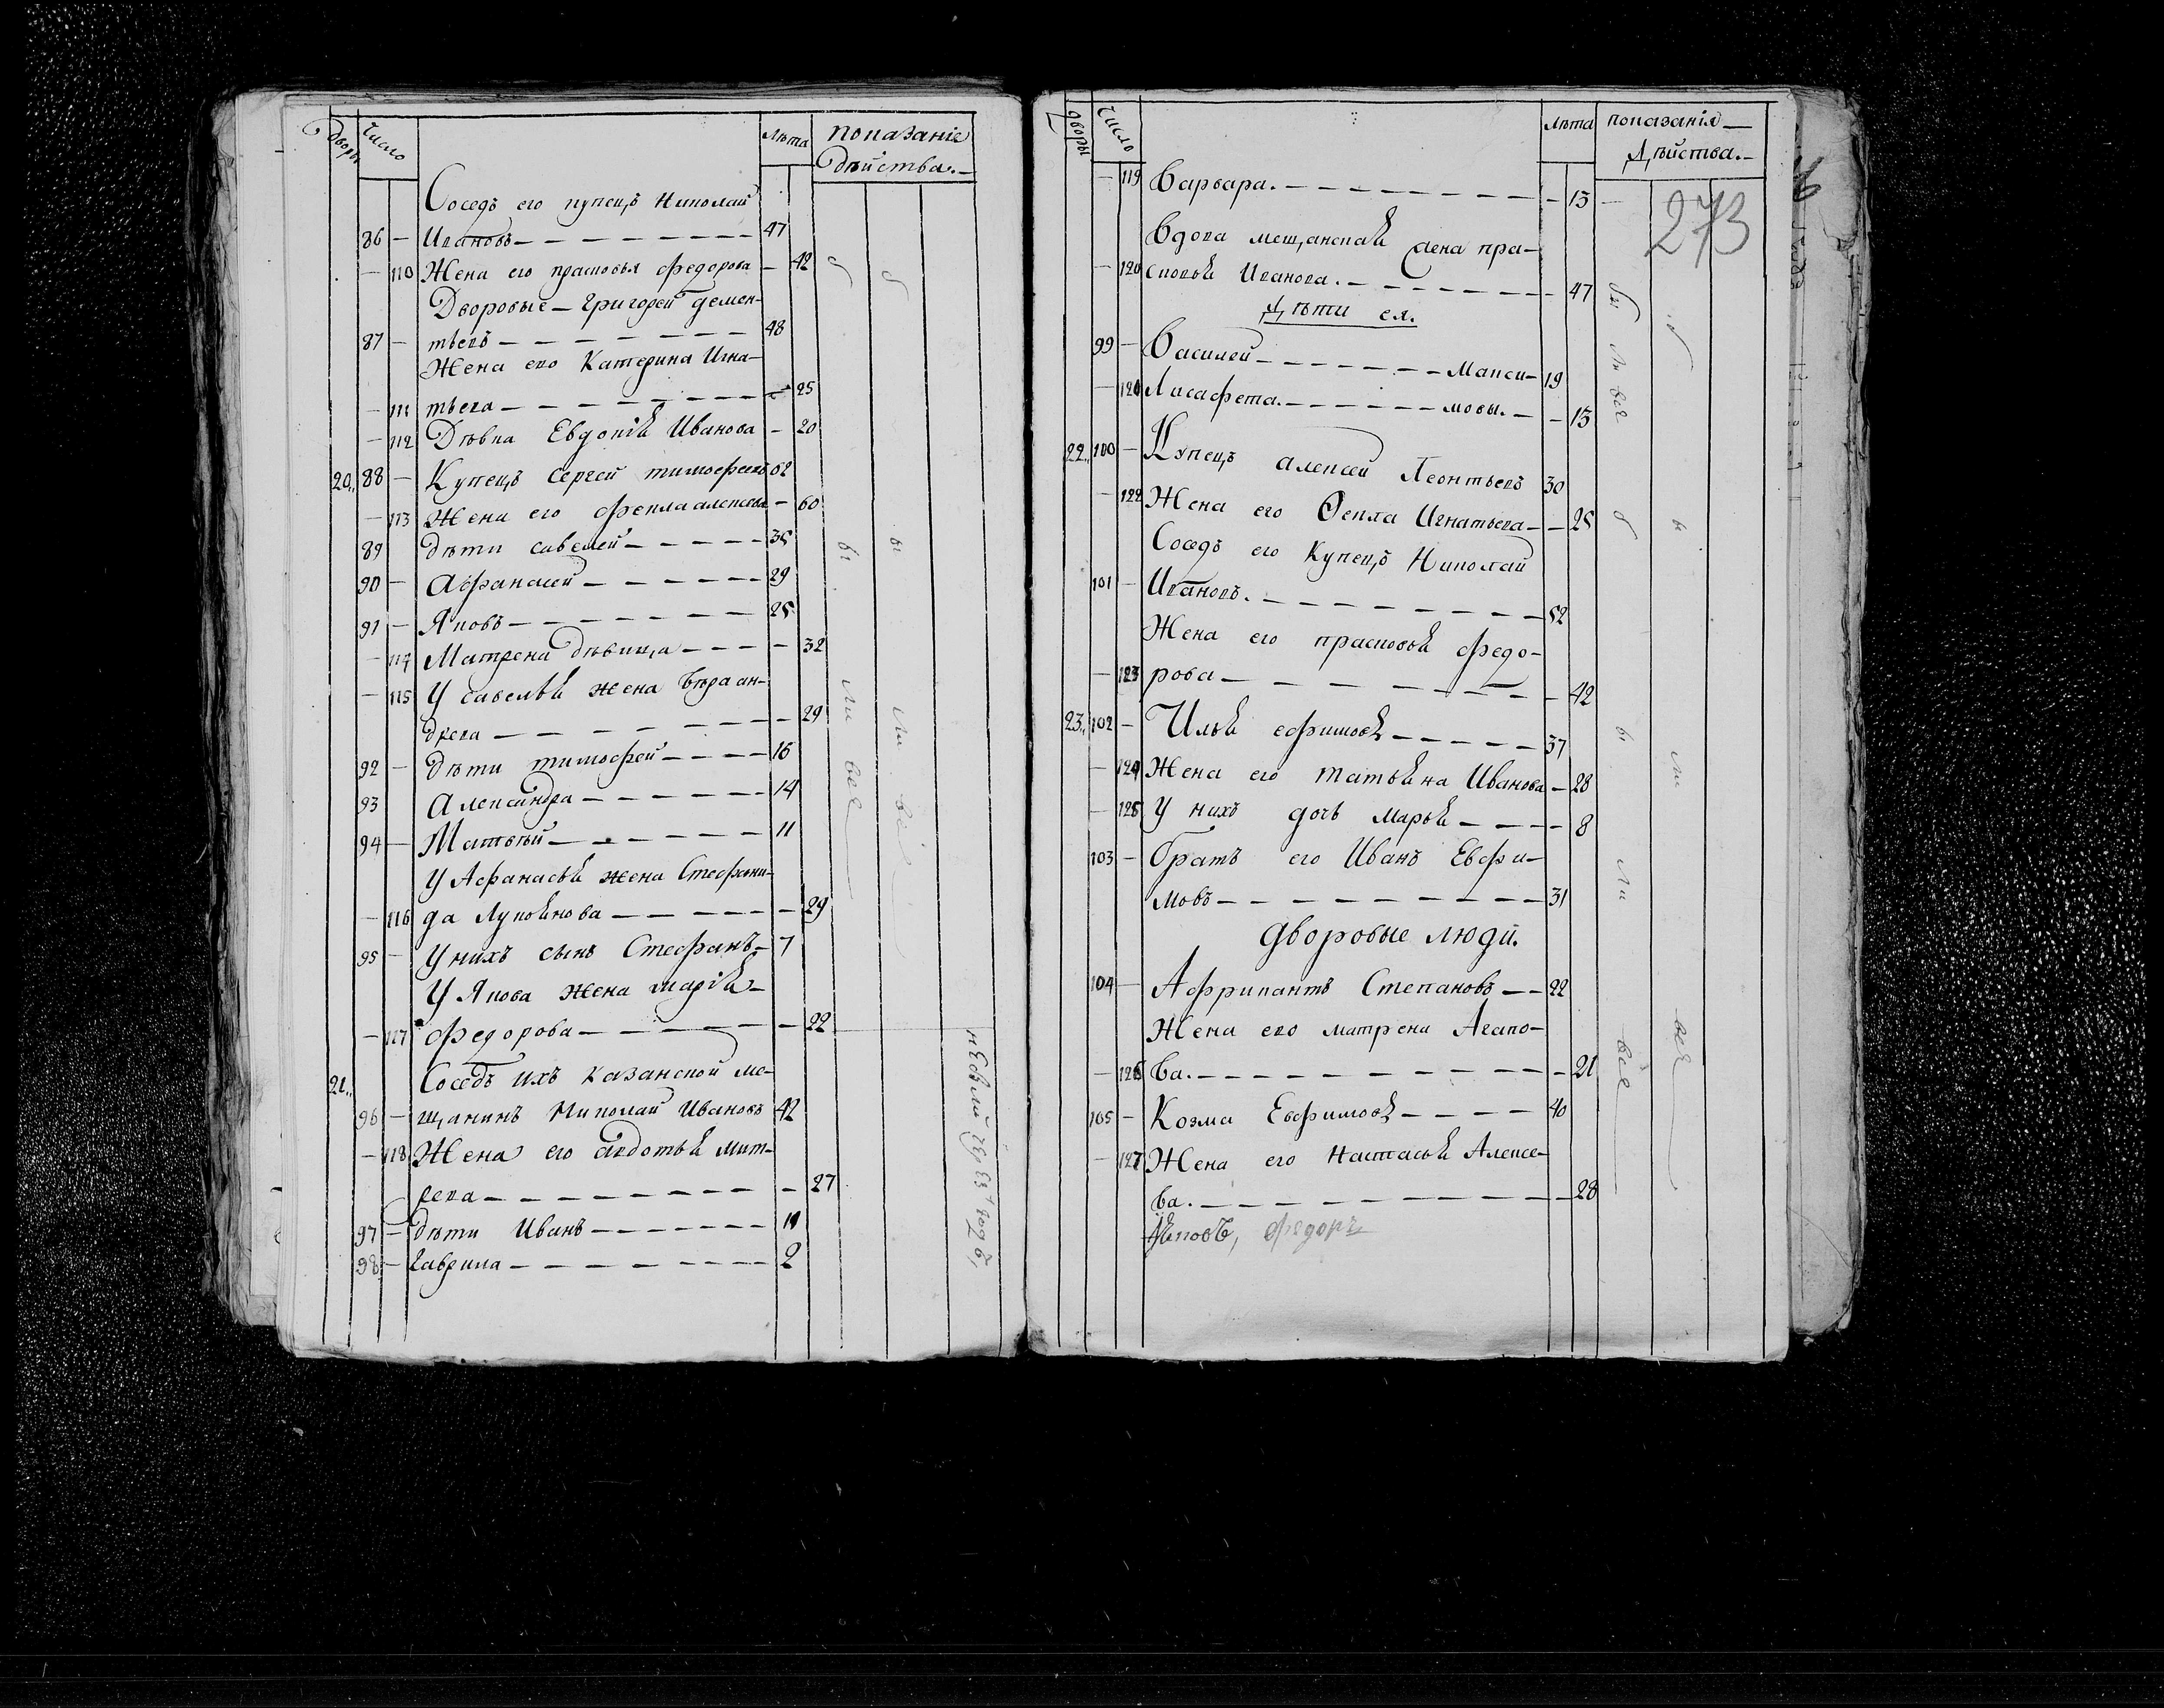 Дворы Число Лѣта показаніе
дѣйства.—
Соседъ его купецъ Николай
86 — Ивановъ — 47
— 110 Жена его прасковья федорова — 42
Дворовые — Григорей демен-
87 — тьевъ — 48
Жена его Катерина Игна-
— 111 тьева — 25
— 112 Дѣвка Евдокія Иванова — 20
20. 88 — Купецъ Сергей тимофеевъ 62
— 113 Жена его фекла алексева — 60
89 дѣти савелей — 35
90 — Афанасей — 29
91 — Яковъ — 25
— 114 Матрена дѣвица — 32
— 115 У савелья жена Вѣра ан-
дреева — 29
92 — дѣти тимофей — 16
93 Александра — 14
94 — Матвѣй — 11
У Афанасья жена Стефани-
— 116 да Лукоянова — 29
95 — У нихъ сынъ Стефанъ — 7
У Якова жена марія
— 117 федорова — 22
21. Соседъ ихъ казанской ме-
96 — щанинъ Николай Ивановъ 42
— 118 Жена его авдотья мит-
рева — 27
97 — дѣти Иванъ — 11
98 — гаврила — 2
были все
были все
дворы Число Лѣта показанія —
Дѣйства.—
273
— 119 Варвара. — 13 —
Вдова мещанская жена пра-
— 120 сковья Иванова. — 47
Дѣти ея.
99 — Василей — Макси- 19
— 121 Лисафета. — мовы. — 13
22. 100 — Купецъ алексей Леонтьевъ 30
— 122 Жена его Фекла Игнатьева — 25
Соседъ его Купецъ Николай
101 — Ивановъ. — 52
Жена его прасковья федо-
— 123 рова — 42
23. 102 — Илья ефимовъ — 37
— 124 Жена его татьяна Иванова — 28
— 125 У нихъ дочь марья — 8
103 — братъ его Иванъ Евфи-
мовъ — 31
дворовые люди.
104 — Африкантъ Степановъ — 22
Жена его матрена Агапо-
— 126 ва. — 21
105 — Козма Евфимовъ — 40
— 127 Жена его настасья Алексе-
ва. — 28
Яковъ, федоръ
были все
были все